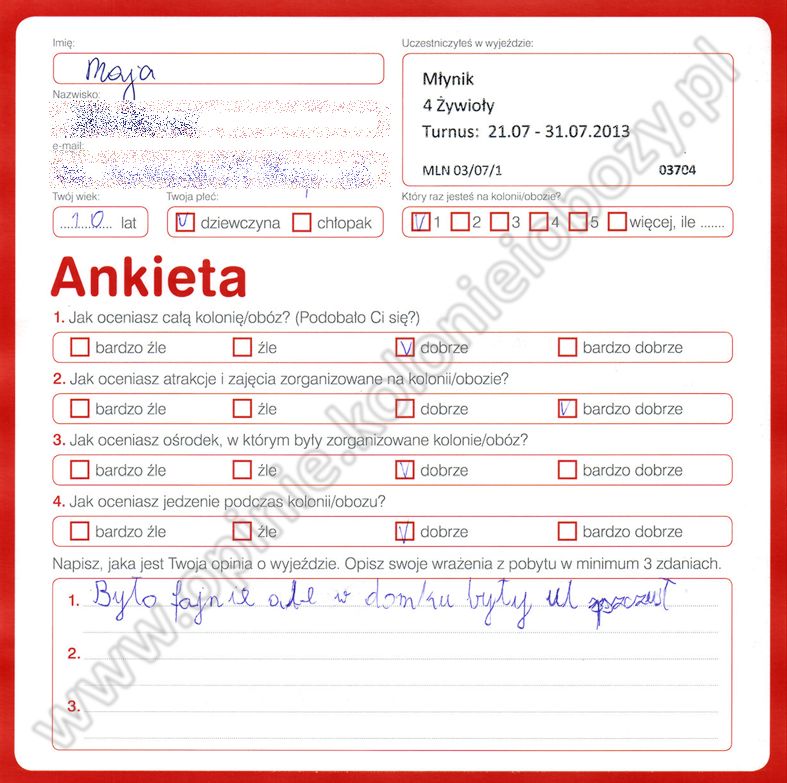 Imię:
Maja
Uczestniczyłeś w wyjeździe:
Młynik
4 Żywioły
Turnus: 21.07 - 31.07.2013
MLN 03/07/1 03704
Nazwisko:
e-mail:
Twój wiek:
10 lat
Twoja płeć:
dziewczyna chłopak
Który raz jesteś na kolonii/obozie?
1 2 3 4 5 więcej, ile .......
Ankieta
1. Jak oceniasz całą kolonię/obóz? (Podobało Ci się?)
bardzo źle źle dobrze bardzo dobrze
2. Jak oceniasz atrakcje i zajęcia zorganizowane na kolonii/obozie?
bardzo źle źle dobrze bardzo dobrze
3. Jak oceniasz ośrodek, w którym były zorganizowane kolonie/obóz?
bardzo źle źle dobrze bardzo dobrze
4. Jak oceniasz jedzenie podczas kolonii/obozu?
bardzo źle źle dobrze bardzo dobrze
Napisz, jaka jest Twoja opinia o wyjeździe. Opisz swoje wrażenia z pobytu w minimum 3 zdaniach.
1. Było fajnie ale w domku były ul
2.
3.
www.opinie.kolonieiobozy.pl